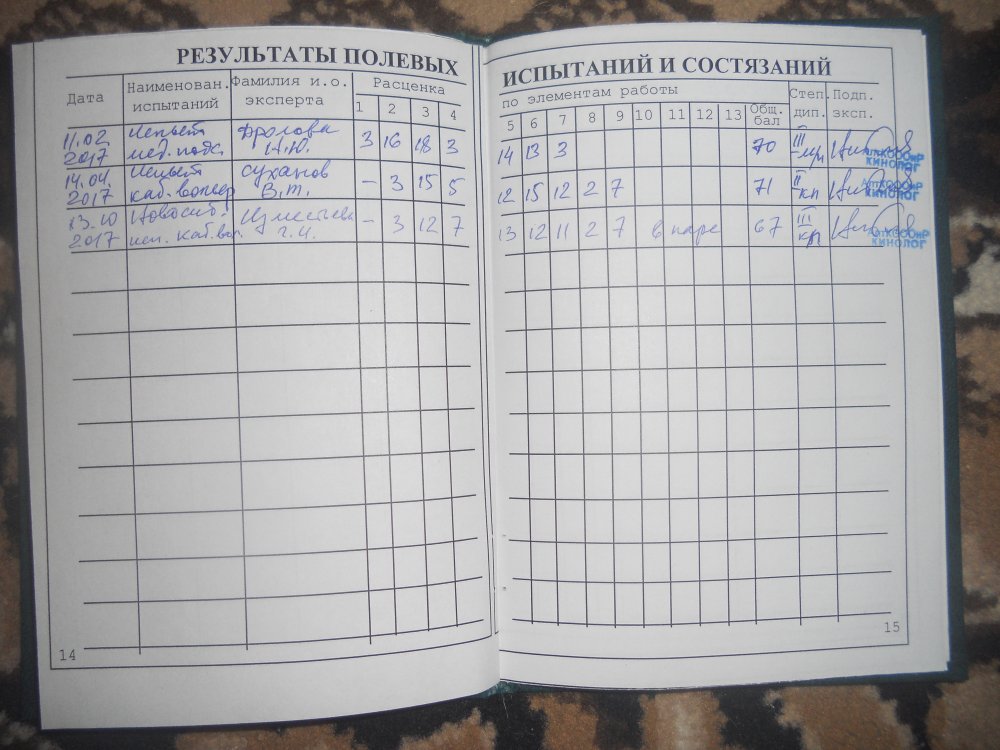 РЕЗУЛЬТАТЫ ПОЛЕВЫХ ИСПЫТАНИЙ И СОСТЯЗАНИЙ
Дата Наименован. испытаний Фамилия и.о. эксперта Расценка по элементам работы Общ. бал Степ. дип. Подп. эксп.
1 2 3 4 5 6 7 8 9 10 11 12 13
11.02 Испыт Фролова
2017 мед. подс. Н.Ю. 3 16 18 3 14 13 3 70 III
14.04. Испыт Суханов
2017 каб. вольер В.Т. – 3 15 5 12 15 12 2 7 71 II кп
13.10 Новосиб.
2017 исп. каб. вол. Г.И. – 3 12 7 13 12 11 2 7 в паре 67 III кп
КИНОЛОГ
КИНОЛОГ
КИНОЛОГ
14
15